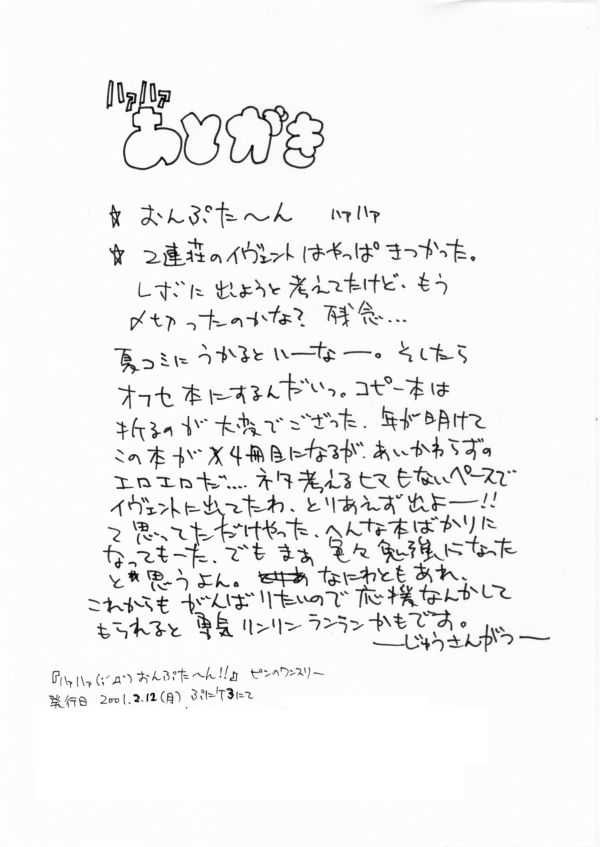 ハァハァ
あとがき
☆ おんぷた〜ん ハァハァ
☆ 2連荘のイヴェントはやっぱきつかった。
レボに出ようと考えてたけど、もう
〆切ったのかな? 残念...
夏コミにうかるといーなー。そしたら
オフセ本にするんだいっ。コピー本は
折るのが大変でござった、年が明けて
この本が4冊目になるが、あいかわらずの
エロエロだ....ネタ考えるヒマもないペースで
イヴェントに出てたわ、とりあえず出よー!!
て思ってただけやった、へんな本ばかりに
なってもーた、でもまぁ色々勉強になった
と思うよん。 なにわともあれ、
これからもがんばりたいので応援なんかして
もられると勇気リンリンランランかもです。
―じゅうさんがつ―
『ハァハァ(;´Д`)おんぷた〜ん!!』 ピンのワンスリー
発行日 2001.2.12(月) ぷにケ3にて